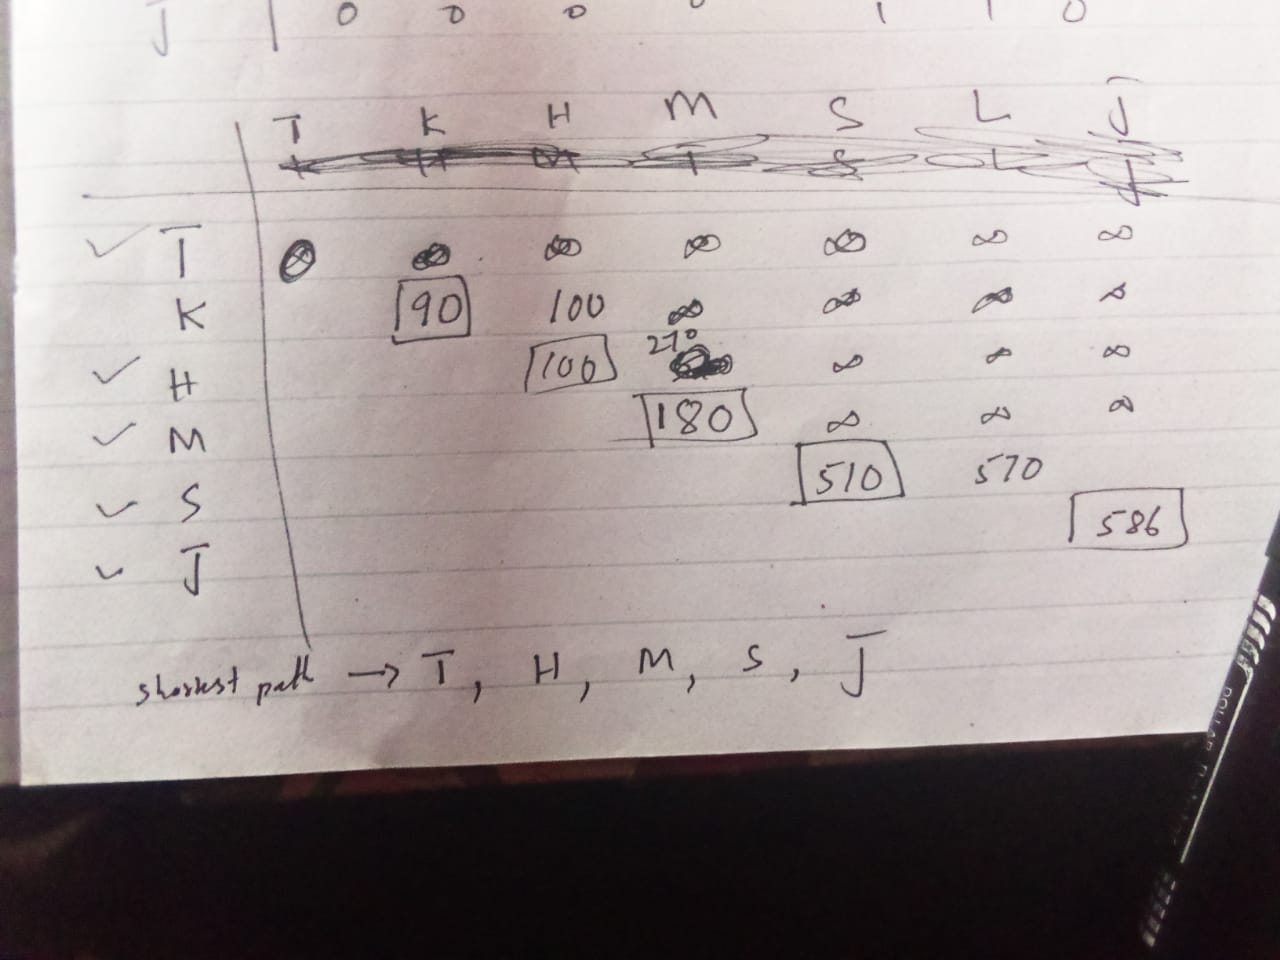 J 0 0 0 0 1 1 0
T K H M S L J
✓ T 0 ∞ ∞ ∞ ∞ ∞ ∞
K 90 100 ∞ ∞ ∞ ∞
✓ H 100 270 ∞ ∞ ∞
✓ M 180 ∞ ∞ ∞
✓ S 510 570
586
✓ J
shortest path → T, H, M, S, J
DOLLAR